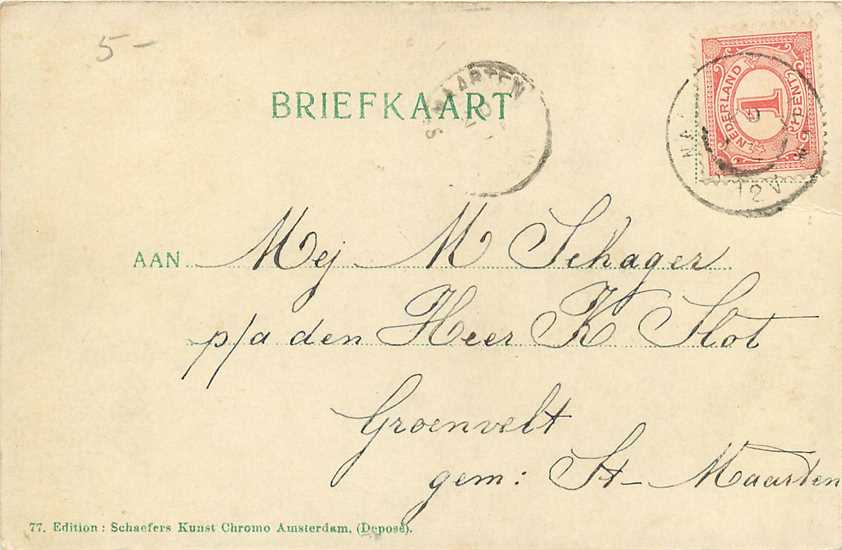 5-
BRIEFKAART
MAARTEN
NEDERLAND
1
CENT
12V
AAN Mej M Schager
p/a den Heer K Slot
Groenvelt
gem: St- Maarten
77. Edition: Schaefers Kunst Chromo Amsterdam, (Deposé).